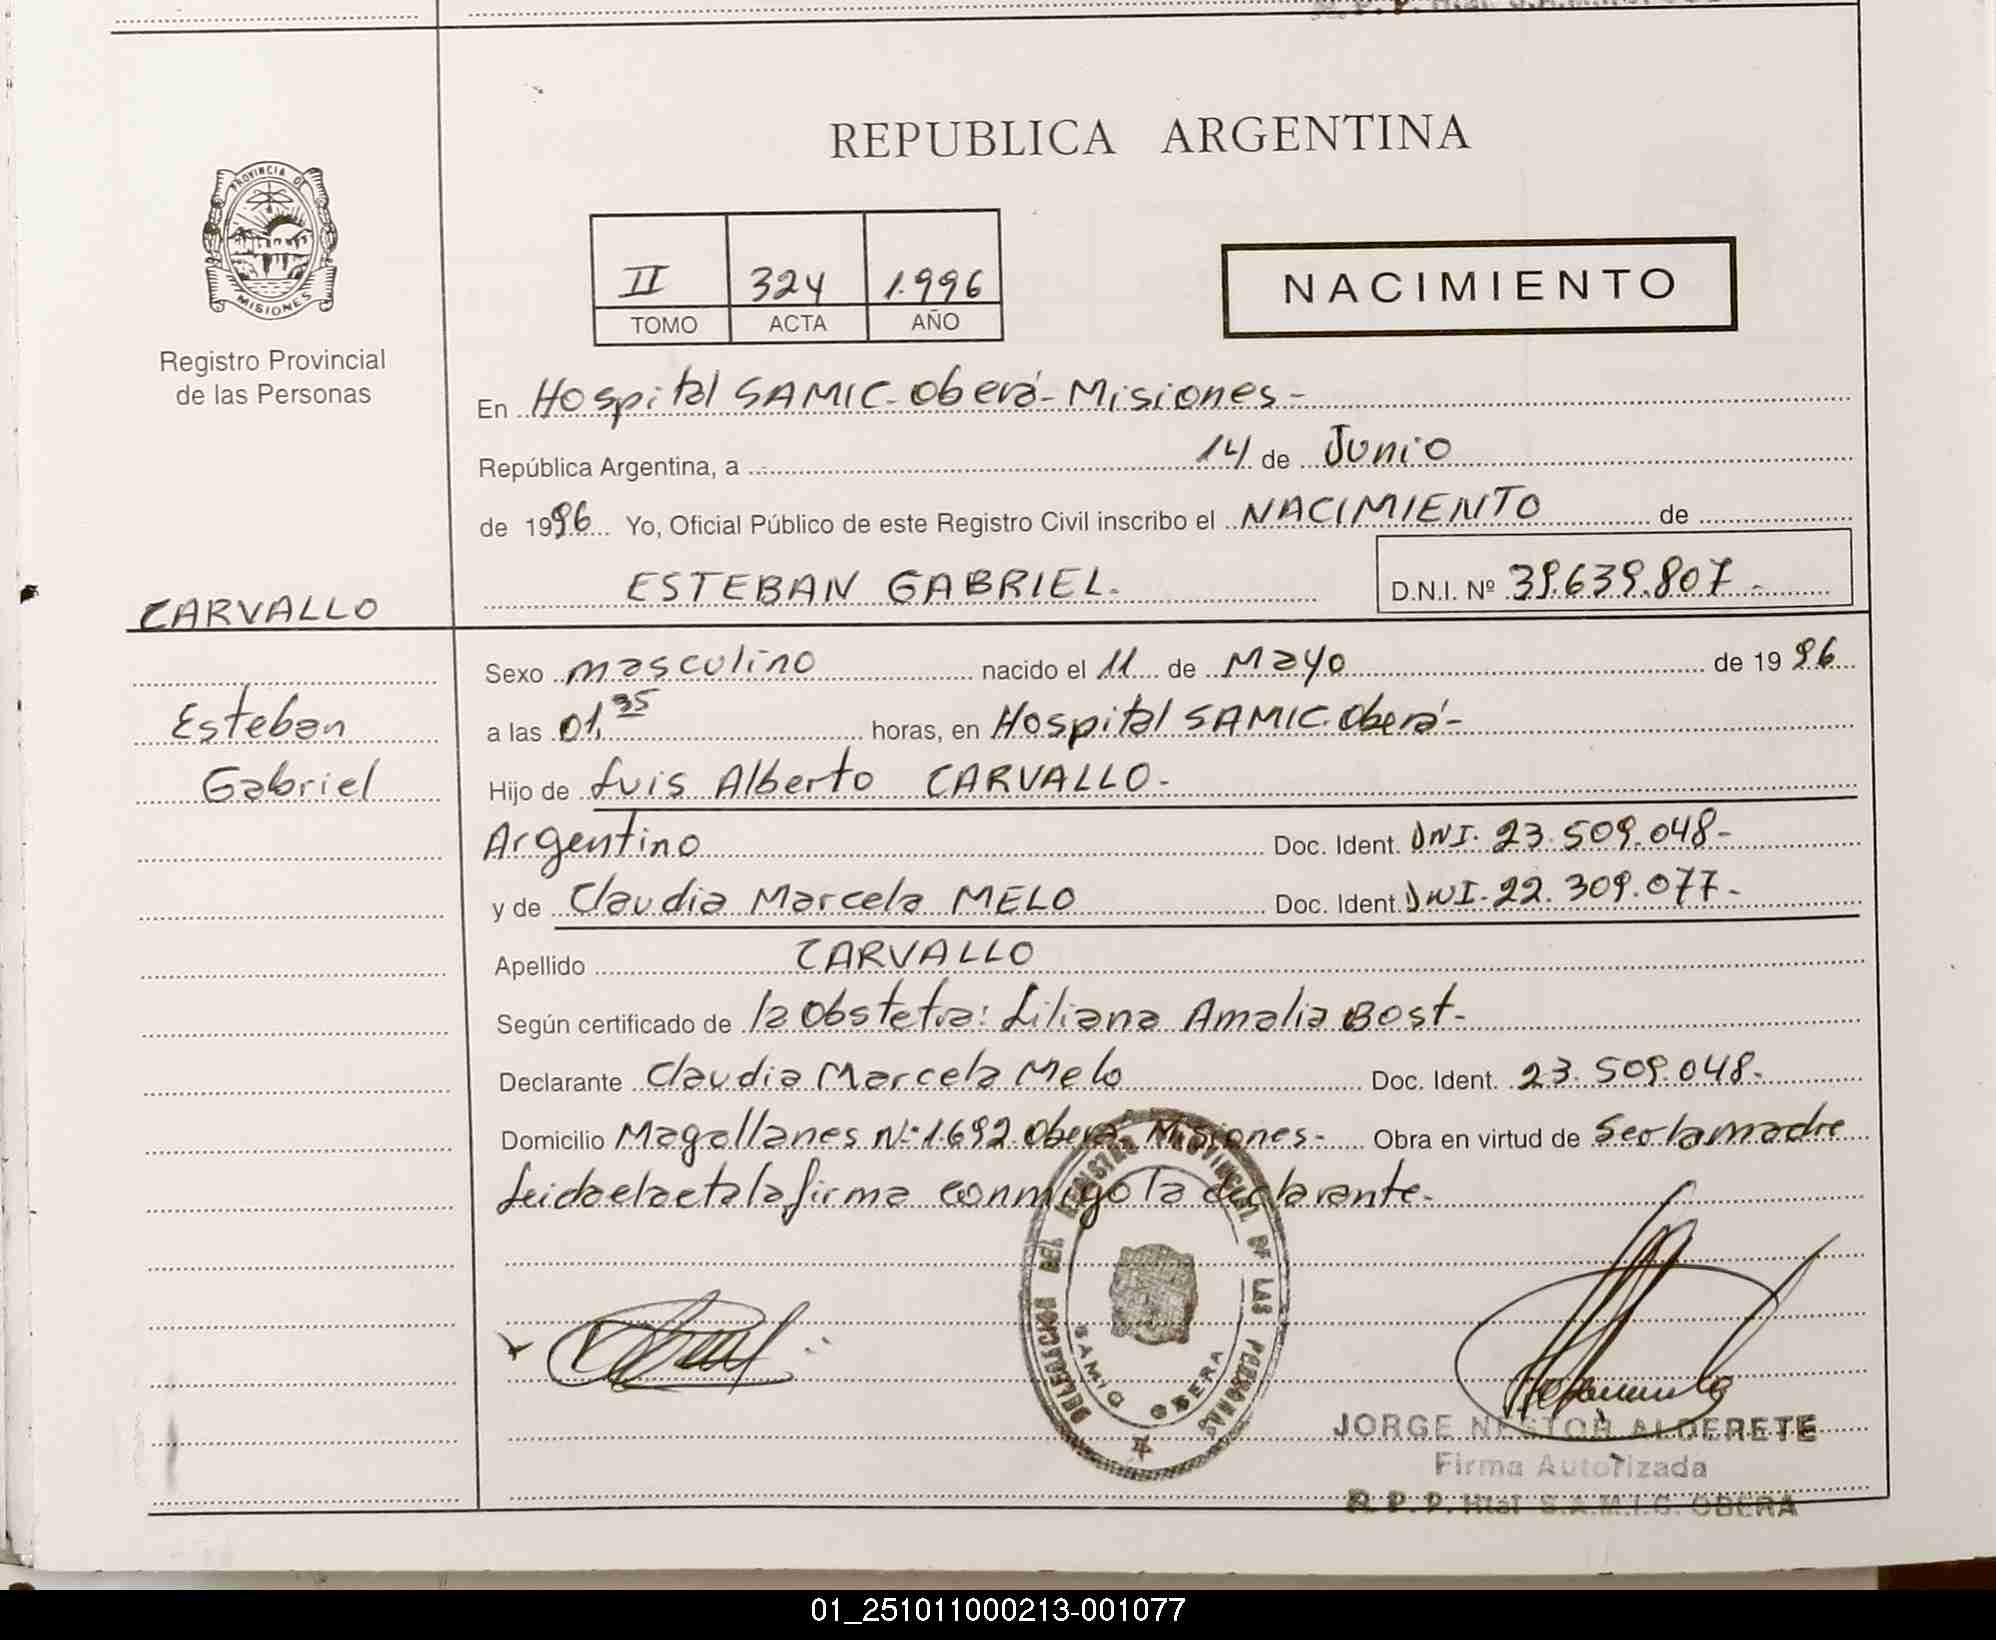 REPUBLICA ARGENTINA
PROVINCIA DE
MISIONES
Registro Provincial
de las Personas
II 324 1.996
TOMO ACTA AÑO
NACIMIENTO
En Hospital SAMIC - Oberá - Misiones -
República Argentina, a 14 de Junio
de 1996 Yo, Oficial Público de este Registro Civil inscribo el NACIMIENTO de
ESTEBAN GABRIEL. D.N.I. Nº 39.639.807.-
CARVALLO
Esteban
Gabriel
Sexo masculino nacido el 11 de Mayo de 1996
a las 01,35 horas, en Hospital SAMIC. Oberá -
Hijo de Luis Alberto CARVALLO -
Argentino Doc. Ident. DNI. 23.509.048 -
y de Claudia Marcela MELO Doc. Ident. DNI. 22.309.077 -
Apellido CARVALLO
Según certificado de la Obstetra: Liliana Amalia Bost -
Declarante Claudia Marcela Melo Doc. Ident. 23.509.048 -
Domicilio Magallanes Nº 1.692 Oberá - Misiones - Obra en virtud de Ser la madre
Leida el acta la firma conmigo la declarante -
DELEGACION DEL REGISTRO PROVINCIAL DE LAS PERSONAS
SAMIC OBERA
JORGE NESTOR ALDERETE
Firma Autorizada
R. P. P. Htal S.A.M.I.C. OBERA
01_251011000213-001077